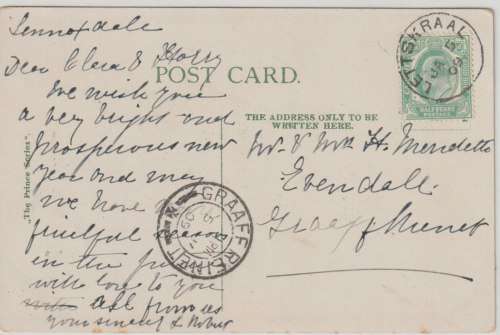 Lennoxdale
Dear Clara & Harry
POST CARD.
We wish you
a very bright and
prosperous new
year and may
we have a
fruitful season
in the
with love to you
all from us
Yours sincerely & Robert
"The Prince Series".
THE ADDRESS ONLY TO BE
WRITTEN HERE.
Mr. & Mrs H.
Evendale
Graaff Reinet
LETTSKRAAL
GRAAFF REINET
HALFPENNY